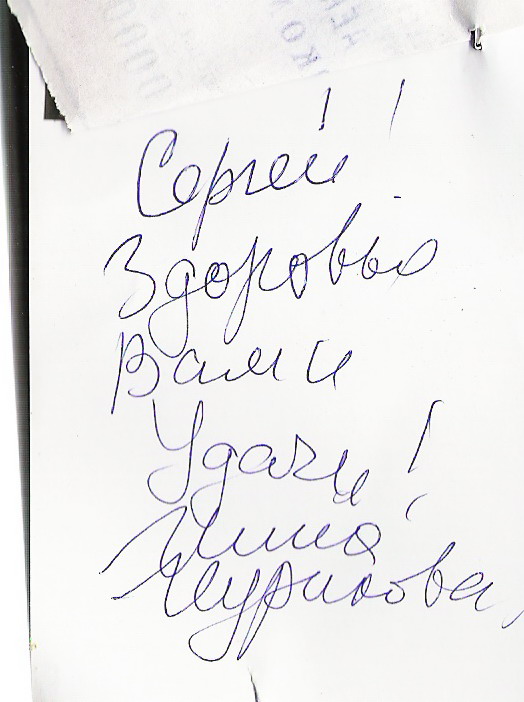 Сергей!
Здоровья
Вам и
Удачи!
Инна
Чурикова